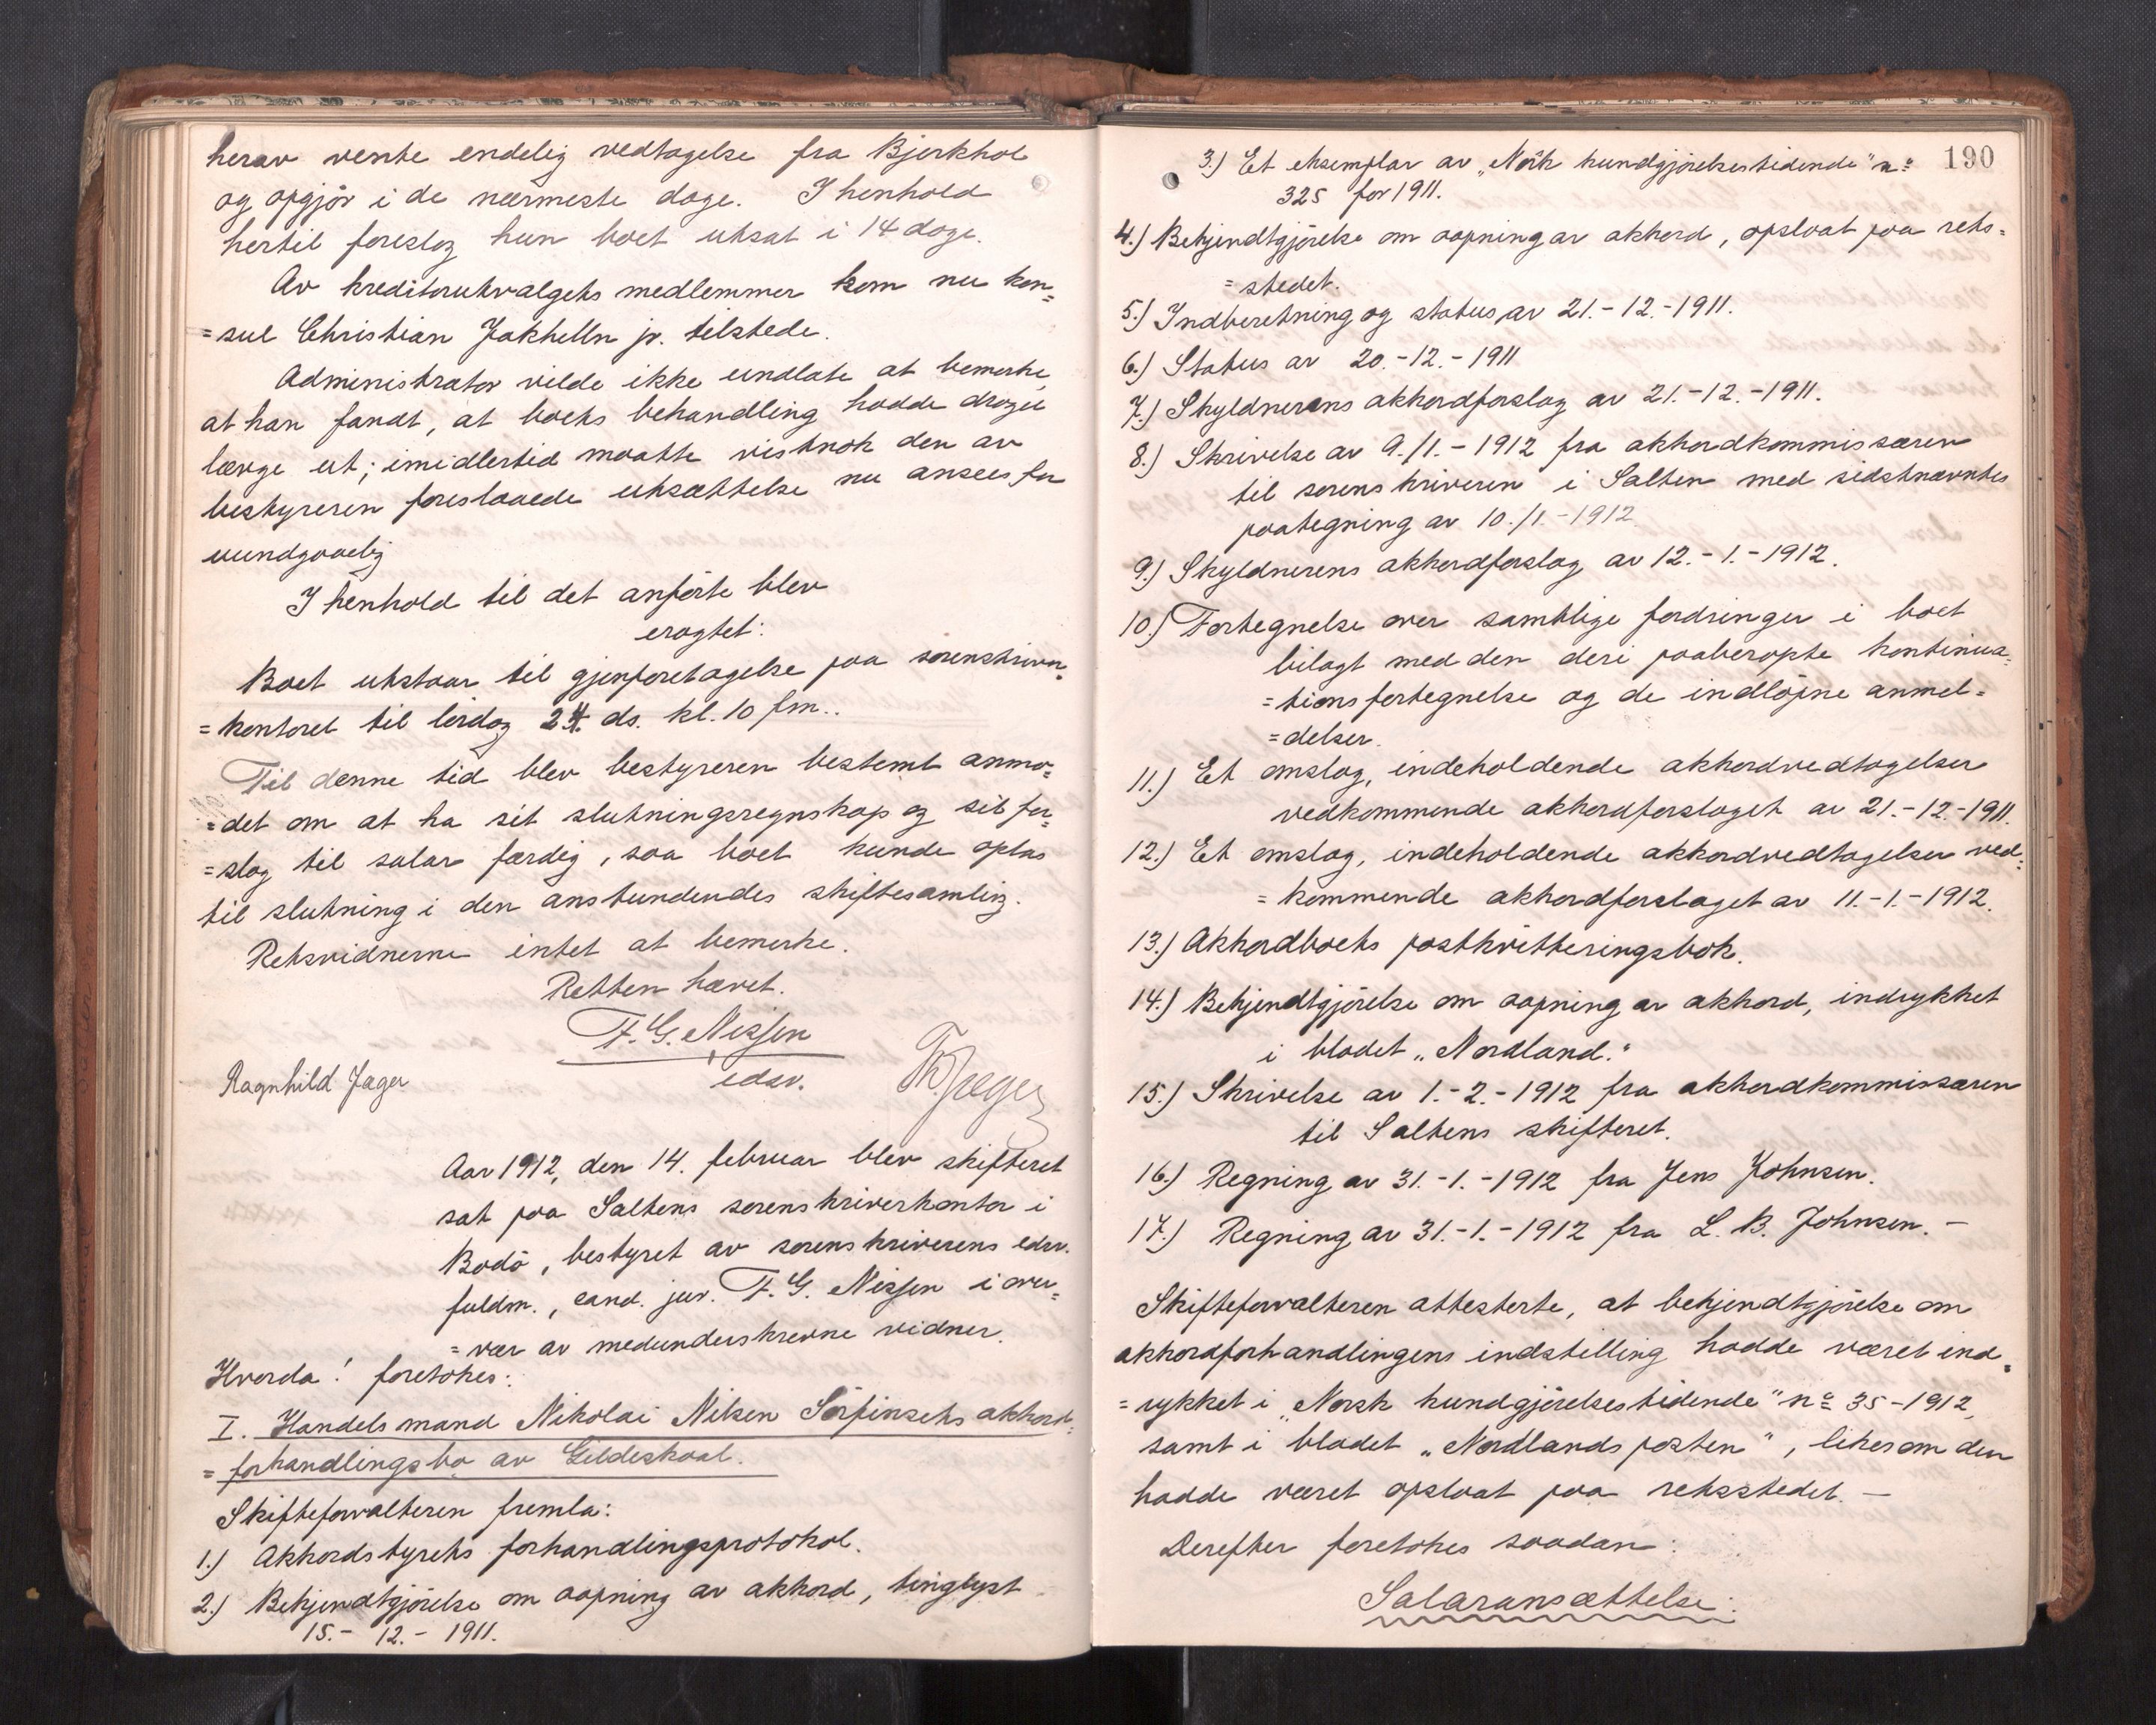 herav vente endelig vedtagelse fra Bjerkhol
og opgjör i de nærmeste dage. I henhold
hertil foreslog hun boet utsat i 14 dage.
Av kreditorutvalgets medlemmer kom nu kon=
=sul Christian Jakhelln jr. tilstede.
Administrator vilde ikke undlate at bemerke,
at han fandt, at boets behandling hadde drøget
længe ut; imidlertid maatte vistnok den av
bestyreren foreslaaede utsættelse nu ansees for
uundgaaelig
I henhold til det anförte blev
eragtet:
Boet utstaar til gjenforetagelse paa sorenskriver=
=kontoret til lördag 24. ds. kl. 10 fm..
Til denne tid blev bestyreren bestemt anmo=
=det om at ha sit slutningsregnskap og sit for=
=slag til salar færdig, saa boet kunde optas
til slutning i den anstundendes skiftesamling.
Retsvidnerne intet at bemerke.
Retten hævet.
F. G. Nissen
edsv.
Ragnhild Jager
Th. Jæger
Aar 1912, den 14. februar blev skifteret
sat paa Saltens sorenskriverkontor i
Bodö, bestyret av sorenskriverens edsv.
fuldm., cand. jur. F. G. Nissen i over=
=vær av medunderskrevne vidner.
Hvorda! foretokes:
I. Handelsmand Nikolai Nilsen Sörfinsets akkord=
=forhandlingsbo av Gildeskaal.
Skifteforvalteren fremla:
1.) Akkordstyrets forhandlingsprotokol.
2.) Bekjendtgjörelse om aapning av akkord, tinglyst
15.- 12.- 1911.
190
3.) Et eksemplar av "Norsk kundgjörelsestidende" no
325 for 1911.
4.) Bekjendtgjörelse om aapning av akkord, opslaat paa rets=
=stedet.
5.) Indberetning og status av 21.-12.-1911.
6.) Status av 20.-12.-1911
7.) Skyldnerens akkordforslag av 21.-12.-1911.
8.) Skrivelse av 9./1.-1912 fra akkordkommissæren
til sorenskriveren i Salten med sidstnævntes
paategning av 10./1.-1912
9.) Skyldnerens akkordforslag av 12.-1.-1912.
10.) Fortegnelse over samtlige fordringer i boet
bilagt med den deri paaberopte kontinua=
=tionsfortegnelse og de indlöpne anmel=
=delser.
11.) Et omslag, indeholdende akkordvedtagelser
vedkommende akkordforslaget av 21.-12.-1911.
12.) Et omslag, indeholdende akkordvedtagelser ved=
=kommende akkordforslaget av 11.-1.-1912.
13.) Akkordboets postkvitteringsbok.
14.) Bekjendtgjörelse om aapning av akkord, indrykket
i bladet "Nordland."
15.) Skrivelse av 1.-2.-1912 fra akkordkommissæren
til Saltens skifteret.
16.) Regning av 31.-1.-1912 fra Jens Johnsen.
17.) Regning av 31.-1.-1912 fra L. B. Johnsen. -
Skifteforvalteren attesterte, at bekjendtgjörelse om
akkordforhandlingens indstilling hadde været ind=
=rykket i "Norsk kundgjörelsestidende" no 35-1912,
samt i bladet "Nordlandsposten", likesom den
hadde været opslaat paa retsstedet. -
Derefter foretokes saadan:
Salaransættelse: